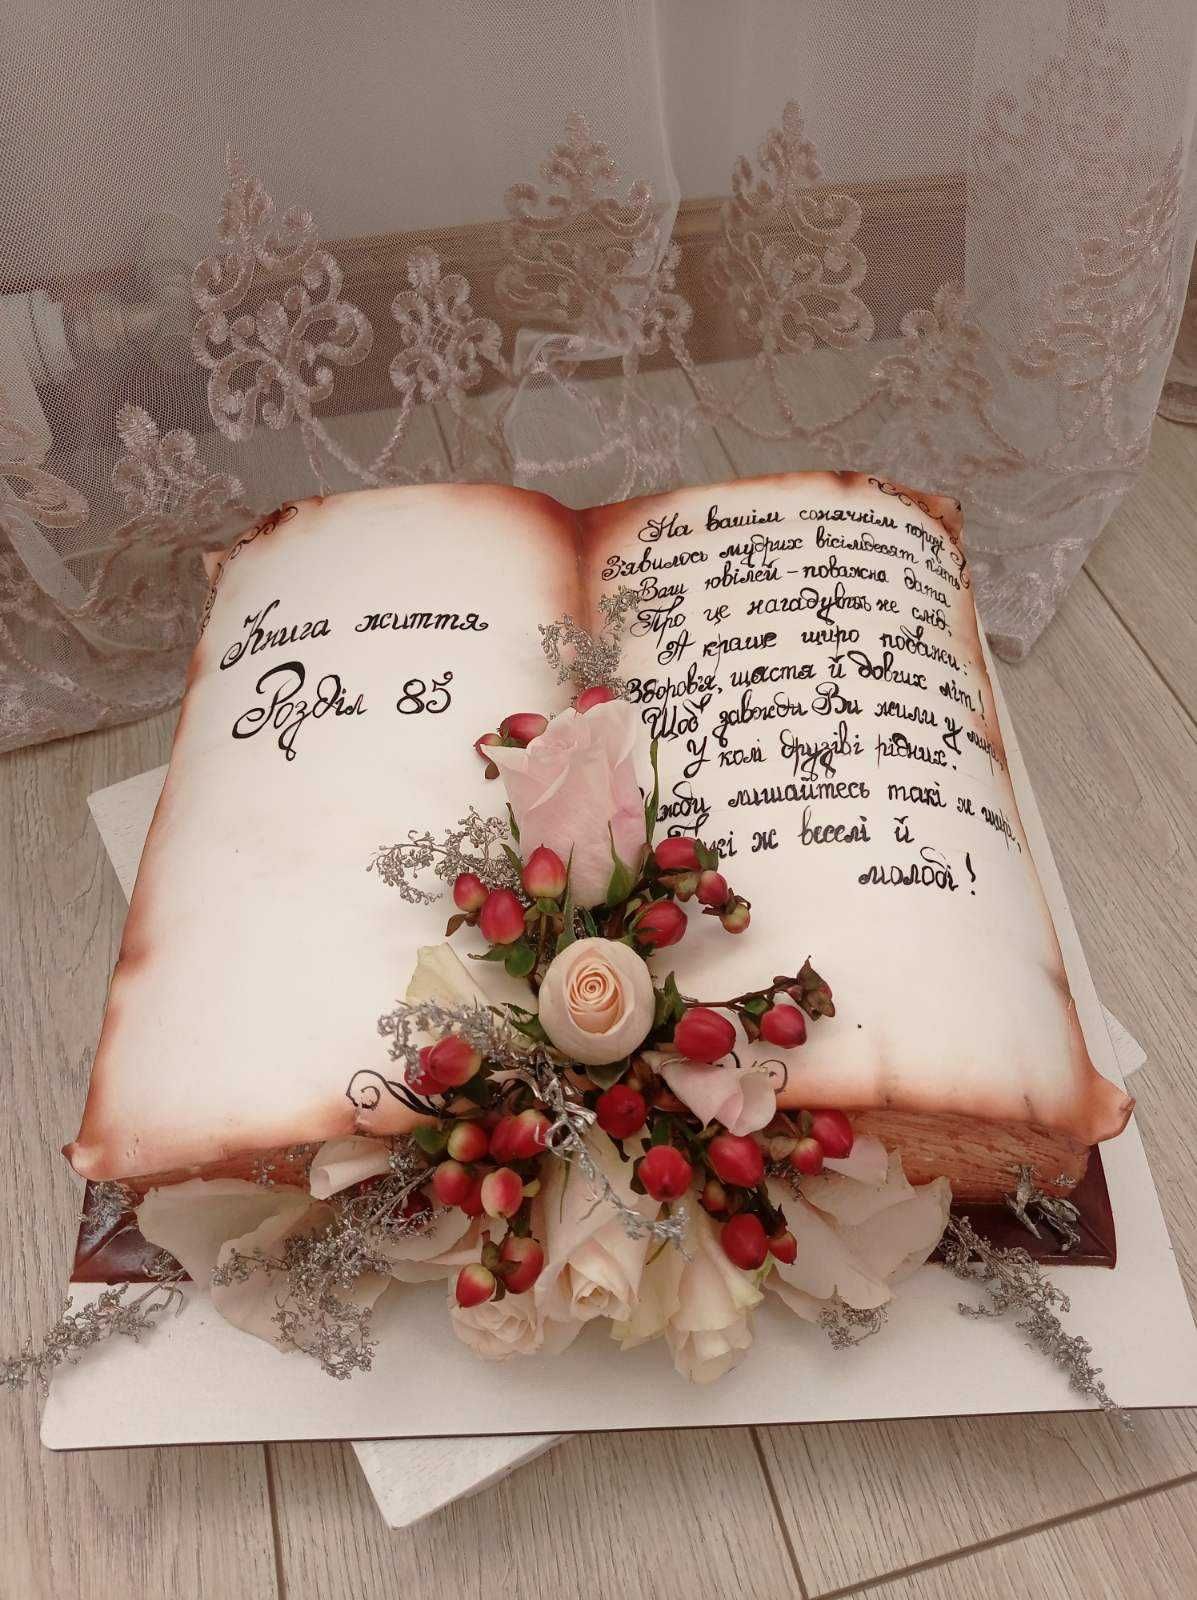 Книга життя
Розділ 85
На вашім сонячнім порозі
З'явилось мудрих вісімдесят п'ять
Ваш ювілей - поважна дата
Про це нагадувать не слід.
А краще щиро побажаю:
Здоров'я, щастя й довгих літ!
Щоб завжди Ви жили у мирі,
У колі друзів і рідних.
лишайтесь такі ж щирі,
Такі ж веселі й
молоді!